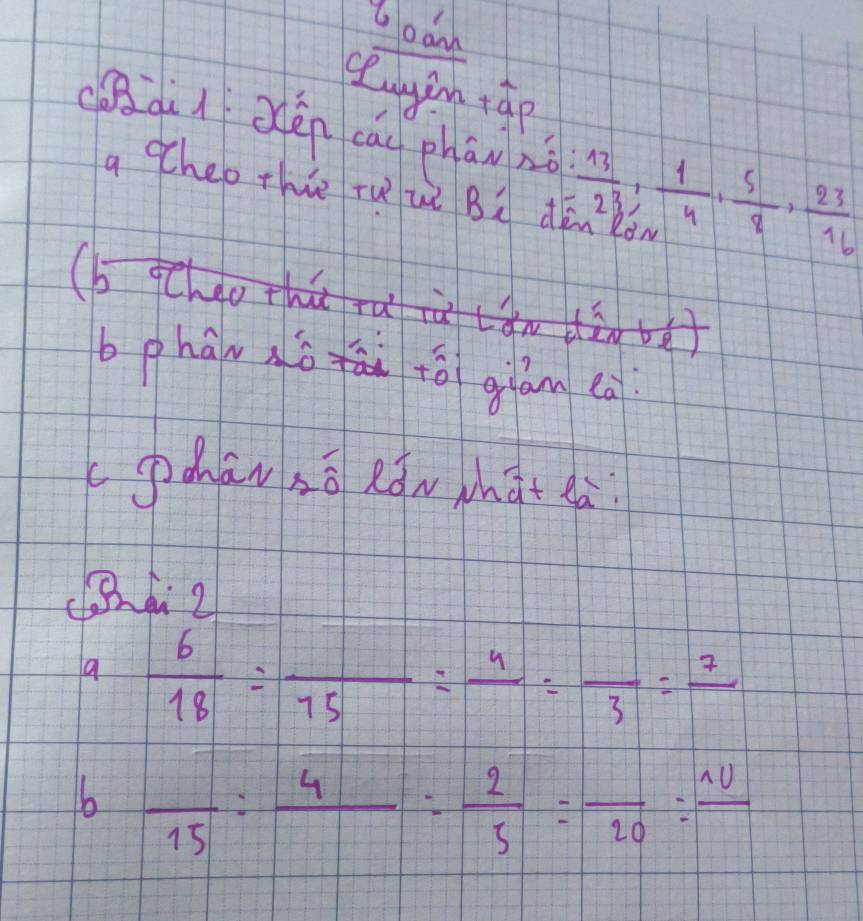 Toán
Luyện tập
Bài 1: Xếp các phân số: 13/23, 1/4, 5/8, 23/16
a Theo thứ tự từ Bé đến lớn
(b Theo thứ tự từ lớn đến bé)
b phân số tối giản là:
c Phân số lớn nhất là:
Bài 2
a 6/18 = __/15 = 4/__ = __/3 = 7/__
b __/15 = 4/__ = 2/5 = __/20 = 10/__